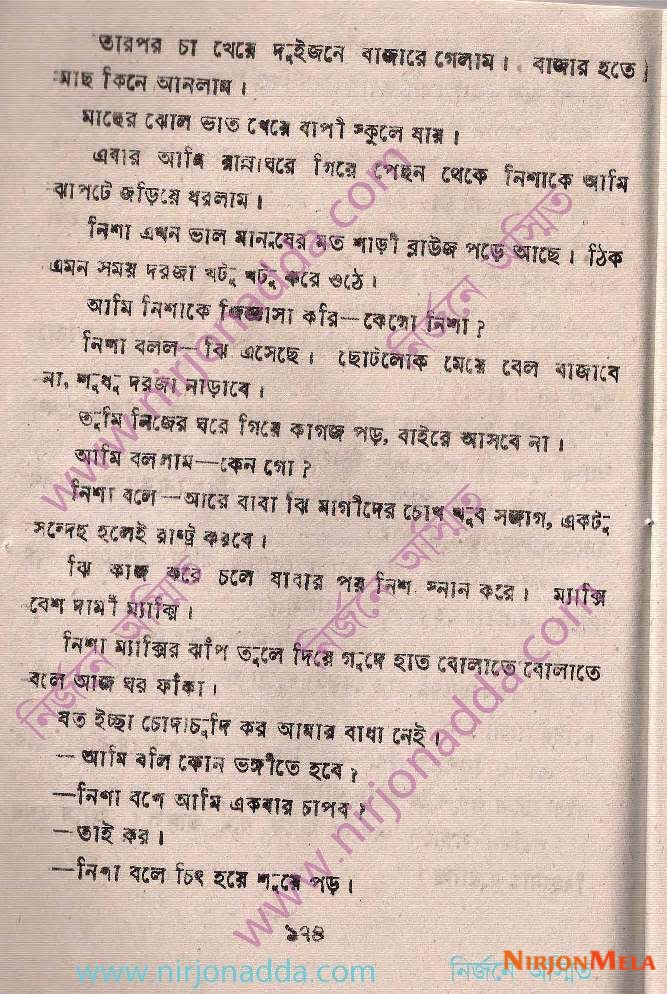 তারপর চা খেয়ে দুইজনে বাজারে গেলাম। বাজার হতে
মাছ কিনে আনলাম।
মাছের ঝোল ভাত খেয়ে বাপী স্কুলে যায়।
এবার আমি রান্নাঘরে গিয়ে পেছন থেকে নিশাকে আমি
ঝাপটে জড়িয়ে ধরলাম।
নিশা এখন ভাল মানুষের মত শাড়ী ব্লাউজ পড়ে আছে। ঠিক
এমন সময় দরজা খটু খটু করে ওঠে।
আমি নিশাকে জিজ্ঞাসা করি—কেগো নিশা?
নিশা বলল—ঝি এসেছে। ছোটলোক মেয়ে বেল বাজাবে
না, শুধু দরজা নাড়াবে।
তুমি নিজের ঘরে গিয়ে কাগজ পড়, বাইরে আসবে না।
আমি বললাম—কেন গো?
নিশা বলে—আরে বাবা ঝি মাগীদের চোখ খুব সজাগ, একটু
সন্দেহ হলেই রাষ্ট্র করবে।
ঝি কাজ করে চলে যাবার পর নিশ স্নান করে। ম্যাক্সি
বেশ দামী ম্যাক্সি।
নিশা ম্যাক্সির ঝাঁপ তুলে দিয়ে গুদে হাত বোলাতে বোলাতে
বলে আজ ঘর ফাঁকা।
যত ইচ্ছা চোদাচুদি কর আমার বাধা নেই।
—আমি বলি কোন ভঙ্গীতে হবে?
—নিশা বলে আমি একবার চাপব?
—তাই কর।
—নিশা বলে চিৎ হয়ে শুয়ে পড়।
১৭৪
www.nirjonadda.com
নির্জনে অস্মিত
www.nirjonadda.com
নির্জনে অস্মিত
নির্জনে অস্মিত
www.nirjonadda.com
নির্জনে অস্মিত
NIRJONMELA